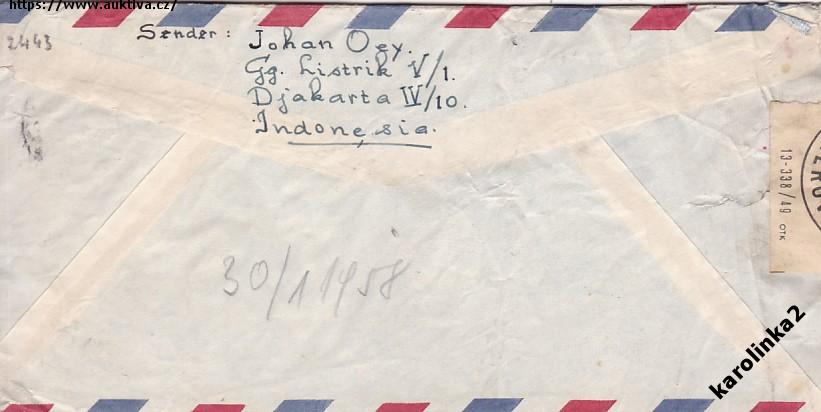 https://www.auktiva.cz/
2443
Sender: Johan Oey.
Gg. Listrik V/1.
Djakarta IV/10.
Indonesia.
13-338/49 OTK
30/1 1958
karolinka2